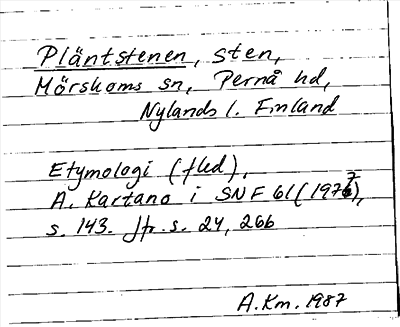 Pläntstenen, sten,
Mörskoms sn, Pernå hd,
Nylands l. Finland
Etymologi (fled),
A. Kartano i SNF 61 (1977),
s. 143. Jfr. s. 24, 266
A. Km. 1987